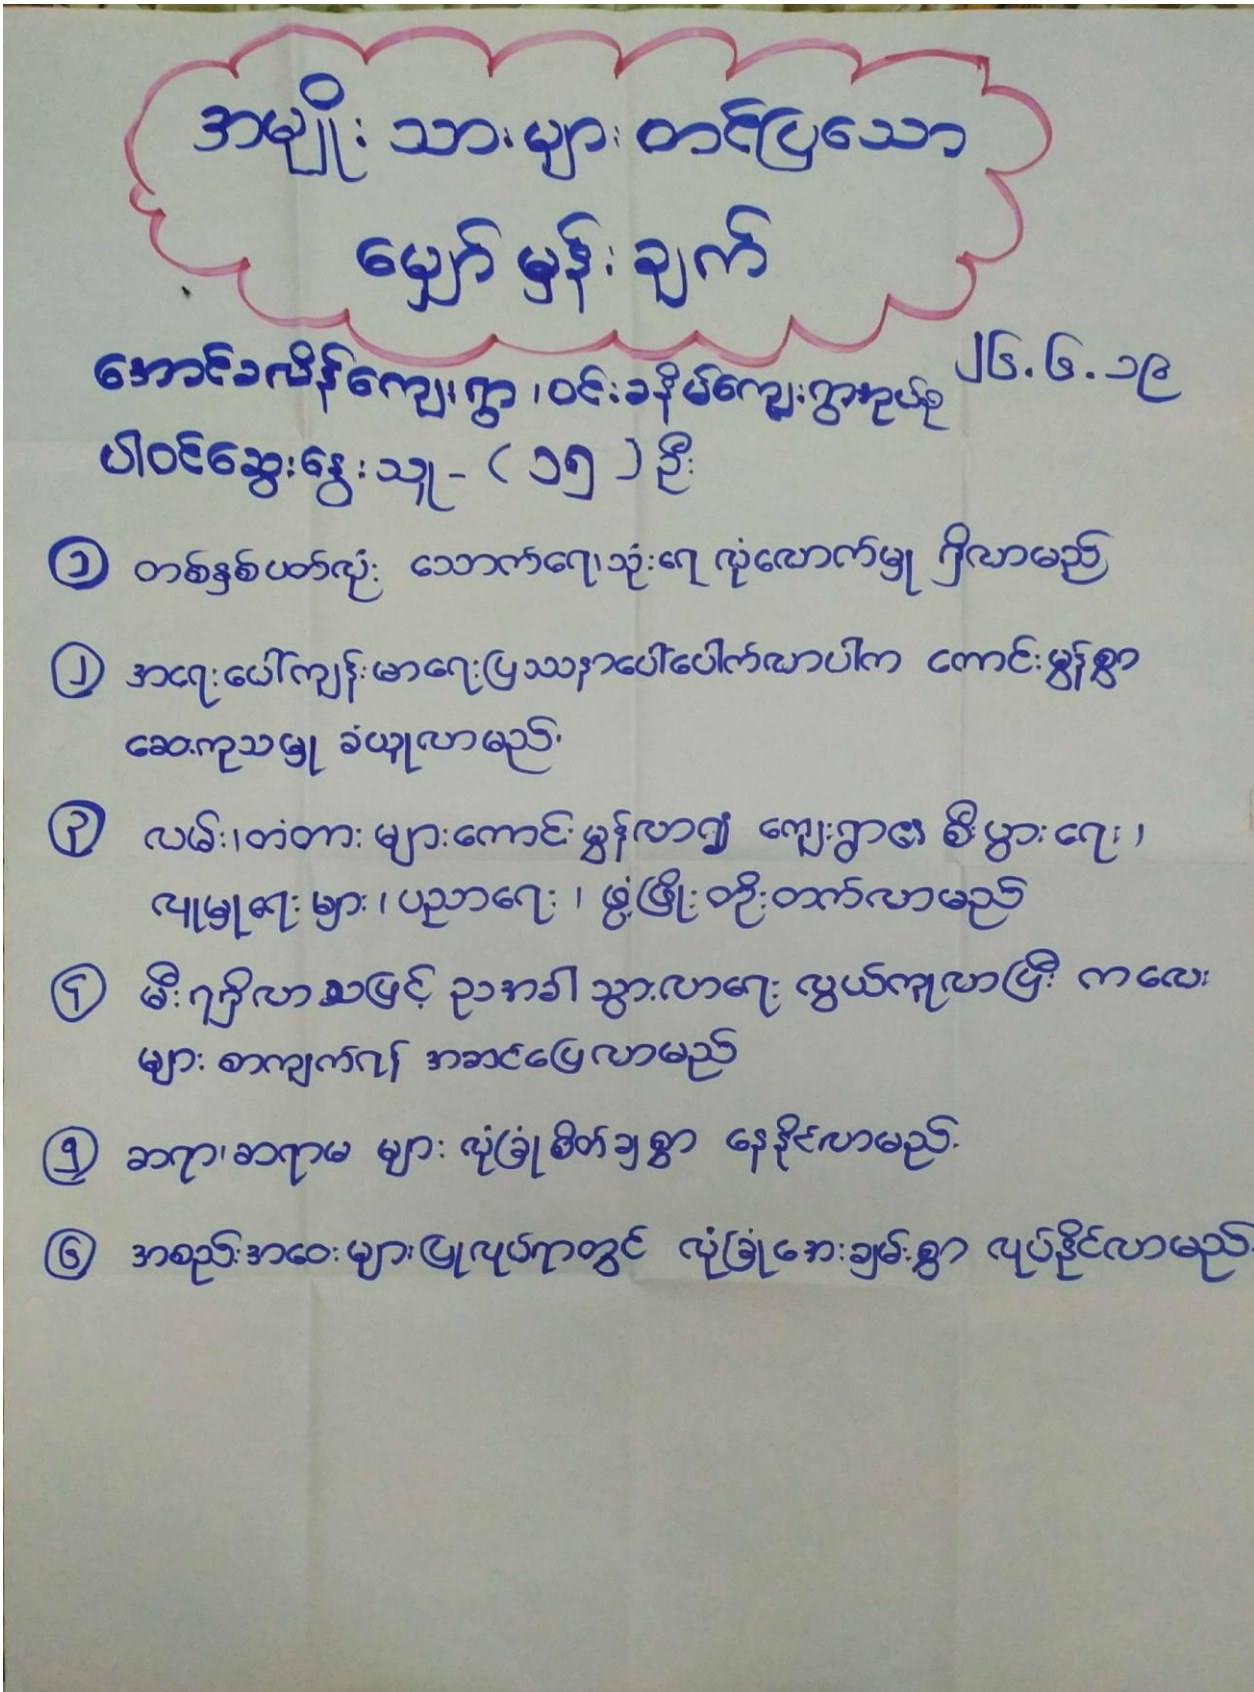 အမျိုးသားများတင်ပြသော
မျှော်မှန်းချက်
၂၆.၆.၁၉
အောင်ခလိန်ကျေးရွာ၊ဝင်းခနိမ်ကျေးရွာအုပ်စု
ပါဝင်ဆွေးနွေးသူ - (၁၅) ဦး
၁ တစ်နှစ်ပတ်လုံး သောက်ရေ၊သုံးရေ လုံလောက်မှု ရှိလာမည်
၂ အရေးပေါ်ကျန်းမာရေးပြဿနာပေါ်ပေါက်လာပါက ကောင်းမွန်စွာ
ဆေးကုသမှု ခံယူလာမည်.
၃ လမ်း၊တံတား များကောင်းမွန်လာ၍ ကျေးရွာ၏ စီးပွားရေး ၊
လူမှုရေးများ ၊ပညာရေး ၊ ဖွံ့ဖြိုးတိုးတက်လာမည်
၄ မီးရရှိလာသဖြင့် ညအခါ သွားလာရေး လွယ်ကူလာပြီး ကလေး
များ စာကျက်ရန် အဆင်ပြေလာမည်
၅ ဆရာ၊ဆရာမ များ လုံခြုံစိတ်ချစွာ နေနိုင်လာမည်.
၆ အစည်းအဝေးများပြုလုပ်ရာတွင် လုံခြုံအေးချမ်းစွာ လုပ်နိုင်လာမည်.